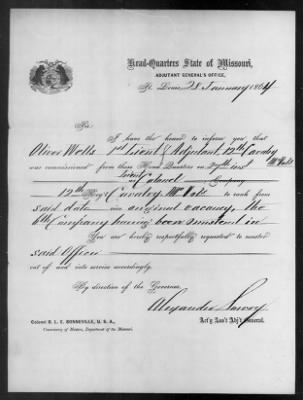 Head-Quarters State of Missouri,
ADJUTANT GENERAL'S OFFICE,
St. Louis 28 January 1864
Sir:
I have the honor to inform you that
Oliver Wells 1st Lieut & Adjutant 12th Cavalry
was commissioned from these Head Quarters on 27th inst
Lieut Colonel Company
12th Reg't Cavalry Mo Vols to rank from
said date vice original vacancy, the
6th Company having been mustered in
You are hereby respectfully requested to muster
said Officer
out of and into service accordingly.
By direction of the Governor,
Colonel B. L. E. BONNEVILLE, U. S. A.,
Commissary of Musters, Department of the Missouri.
Act'g Ass't Adj't General.